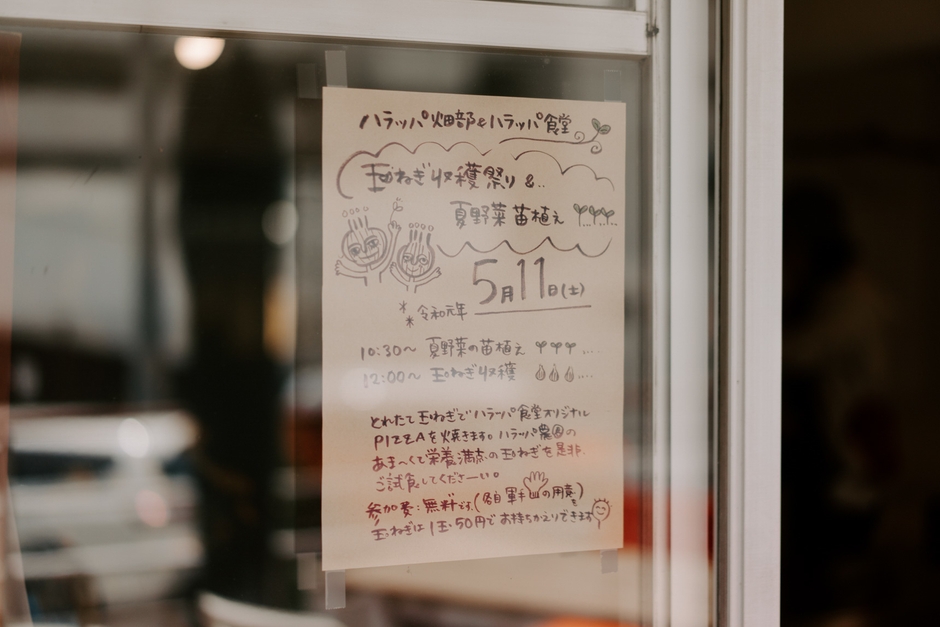 ハラッパ畑部&ハラッパ食堂
玉ねぎ収穫祭り &..
夏野菜苗植え
5月11日(土)
**令和元年
10:30〜 夏野菜の苗植え ....
12:00〜 玉ねぎ収穫 ....
とれたて玉ねぎでハラッパ食堂オリジナル
PIZZAを焼きます。ハラッパ農園の
あま〜くて栄養満点の玉ねぎを是非、
ご試食してくださーい。
参加費:無料です。(各自軍手の用意を)
玉ねぎは1玉50円でお持ちかえりできます